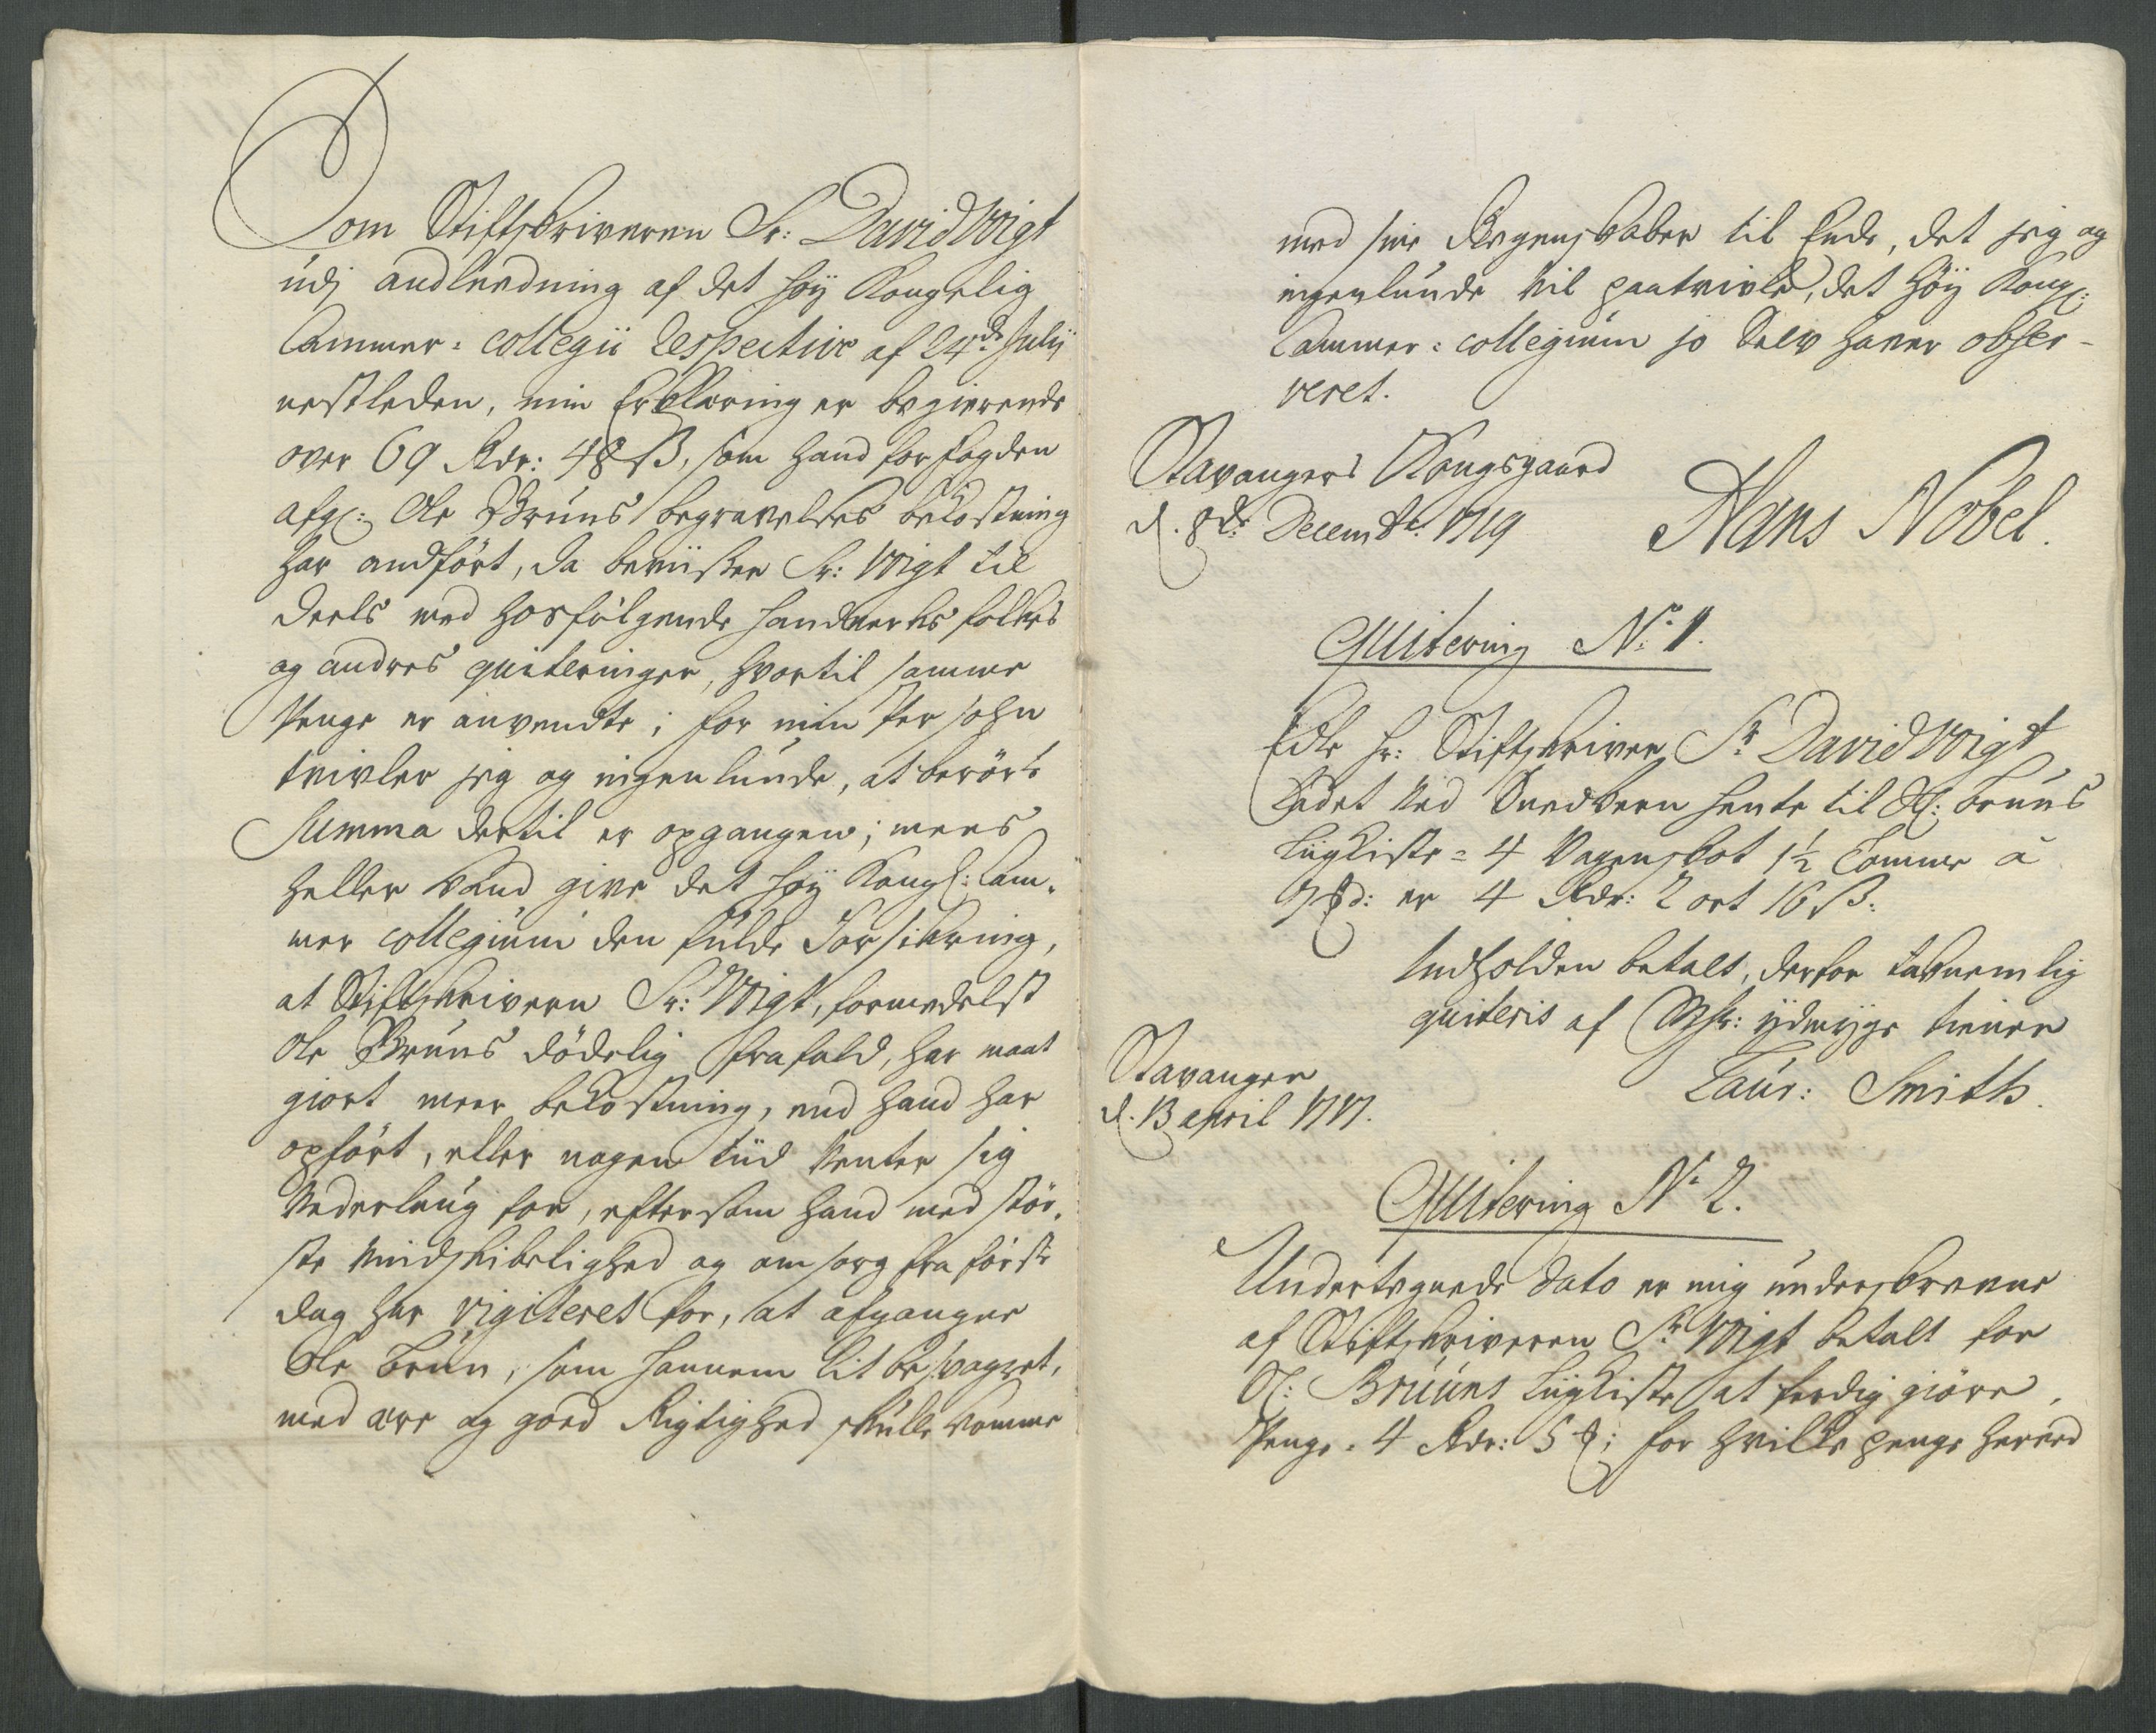 Som Stiftskriveren Sr: David Voigt
udj andledning af det høy Kongelig
Cammer-Collegii Respective af 24de Julij
nestleden, min Erklæring er begierende
over 69 Rdr: 48 s, som hand for fogden
afg: Ole Bruuns begravelses bekostning
har andført, da beviiser Sr: Voigt til
deels med hosfølgende handverks folkes
og andres quiteringer, hvortil samme
Penge er anvendte; for min Persohn
tvivler jeg og ingenlunde, at berørte
Summa dertil er opgangen; meens
heller kand give det høy Kongl: Cam-
mer Collegium den fulde Forsikring,
at Stiftskrivern Sr: Voigt, formedelst
Ole Bruuns dødelig frafald, har maat
giort meer bekostning, end hand har
opført, eller nogen tiid venter sig
Vederlaug for, eftersom hand med stør-
ste Vindskibelighed og omsorg fra første
dag har vigileret for, at afgangne
Ole Bruun, som hannem lit besvogret,
med ære og goed Rigtighed skulle komme
med sine Regenskaber til Ende, det jeg og
ingenlunde vil paatvivle, det Høy Kongl:
Cammer-Collegium jo Selv haver obser-
veret.
Stavangers Kongsgaard
d. 8de Decembr: 1719
Hans Nobel.
Quitering No: 1.
Edle Hr: Stiftskriver Sr David Voigt
Ladet ved Snedkern hente til Sl: Bruuns
Liigkiste = 4 Vagenskot 1½ Tomme a
er 4 Rdr: 2 ort 16 s:
Indholden betalt, derfor taknemlig
quiteris af Msr: ydmyge tiener
Laur: Smith.
Stavanger
d. 13 april 1717.
Quitering No 2.
Undertegnede dato er mig underskrevne
af Stiftskriveren Sr Voigt betalt for
Sl: Bruuns Liigkiste at ferdig giøre,
Penge - 4 Rdr: 5 ; for hvilke penge herved